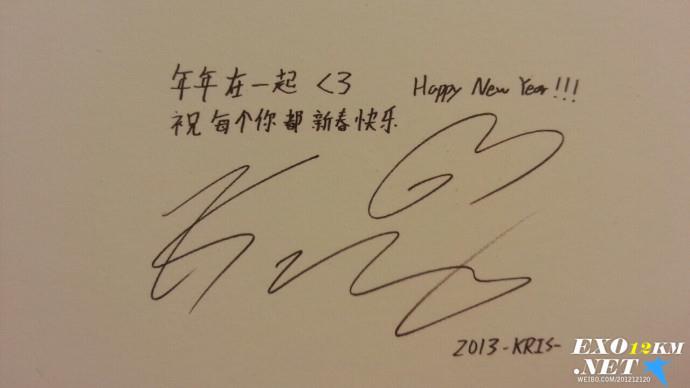 年年在一起 <3 Happy New Year!!!
祝每个你都新春快乐
2013 -KRIS-
EXO12KM
.NET
WEIBO.COM/201212120